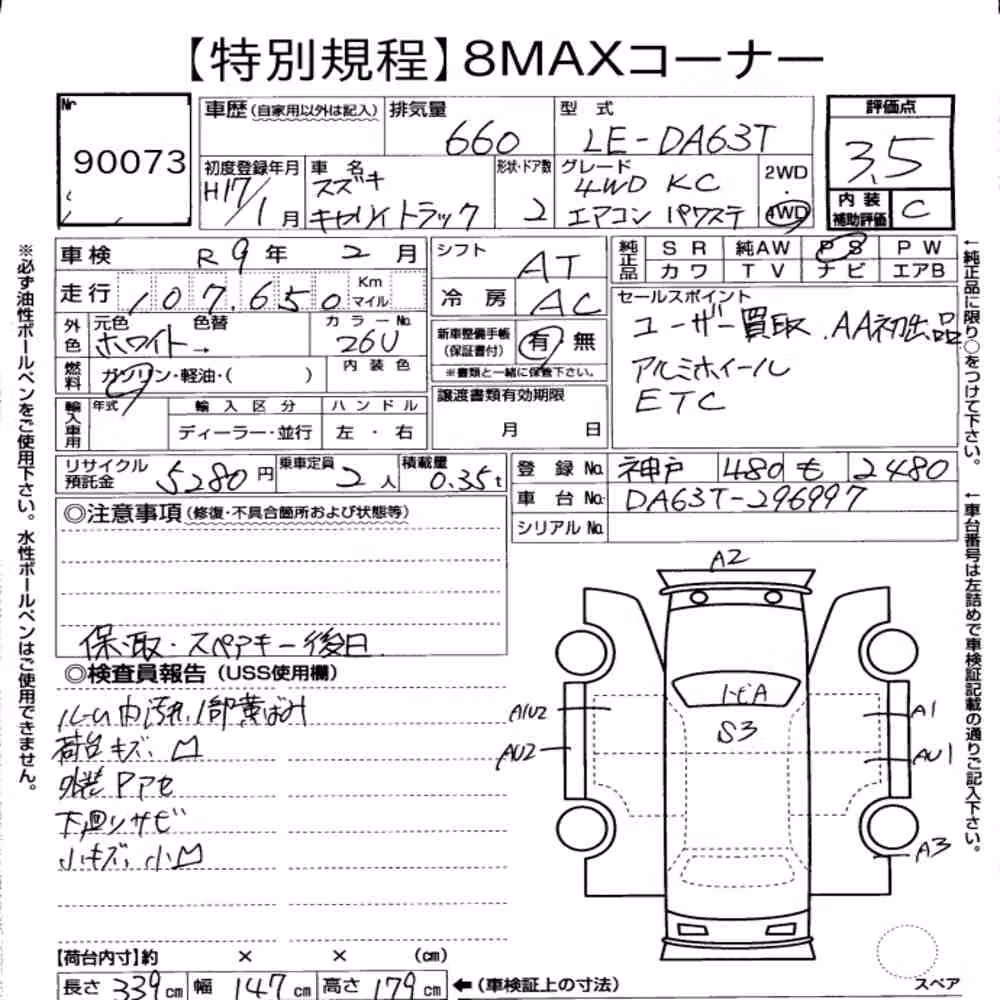 【特別規程】8MAXコーナー
Nr 90073
車歴(自家用以外は記入) 排気量 660 型式 LE-DA63T
初度登録年月 H17/1月 車名 スズキ キャリイトラック 形状・ドア数 2 グレード 4WD KC エアコン パワステ 2WD・4WD
評価点 3.5
内装補助評価 C
車検 R9年 2月
走行 107,650 Km マイル
外色 元色 ホワイト→ 色替 カラーNo. 26U
燃料 ガソリン・軽油・( ) 内装色
輸入車用 年式 輸入区分 ディーラー・並行 ハンドル 左・右
シフト AT
冷房 AC
新車整備手帳(保証書付) 有・無
※書類と一緒に保管下さい。
譲渡書類有効期限
月 日
純正品 SR 純AW PS PW
カワ TV ナビ エアB
セールスポイント
ユーザー買取.AA初出品
アルミホイール
ETC
リサイクル預託金 5280円 乗車定員 2人 積載量 0.35t
登録No. 神戸 480 も 2480
車台No. DA63T-296997
シリアルNo.
◎注意事項(修復・不具合箇所および状態等)
保・取・スペアキー後日
◎検査員報告(USS使用欄)
ルーム内汚れ、1部黄ばみ
荷台キズ、凹
外装Pアセ
下廻りサビ
小キズ、小凹
A2
トビA
S3
A1U2
AU2
A1
AU1
A3
スペア
【荷台内寸】約 × × (cm)
長さ 339cm 幅 147cm 高さ 179cm ←(車検証上の寸法)
※必ず油性ボールペンをご使用下さい。水性ボールペンはご使用できません。
←純正品に限り○をつけて下さい。
←車台番号は左詰めで車検証記載の通りご記入下さい。